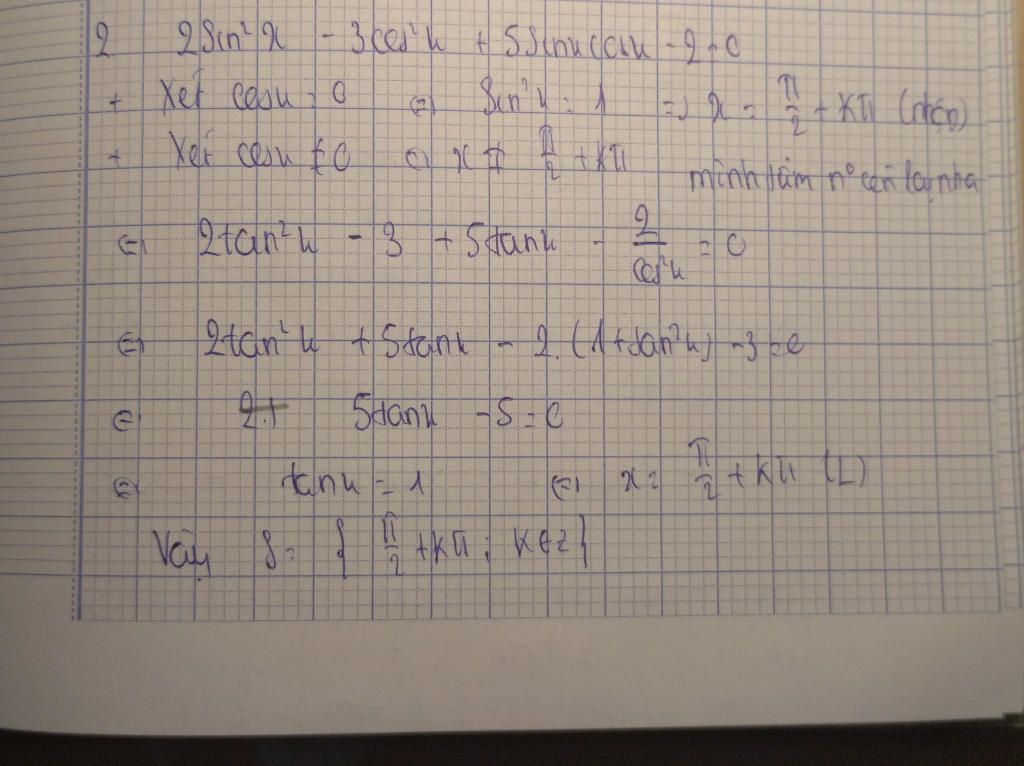 2 2sin²x - 3cos²x + 5sinxcosx - 2 = 0
+ Xét cosx = 0 ⇔ sin²x = 1 => x = π/2 + kπ (nhận)
+ Xét cosx ≠ 0 ⇔ x ≠ π/2 + kπ
mình làm n° còn lại nha
⇔ 2tan²x - 3 + 5tanx - 2/cos²x = 0
⇔ 2tan²x + 5tanx - 2.(1+tan²x) - 3 = 0
⇔ 5tanx - 5 = 0
⇔ tanx = 1 ⇔ x = π/2 + kπ (L)
Vậy S = { π/2 + kπ ; k∈Z }